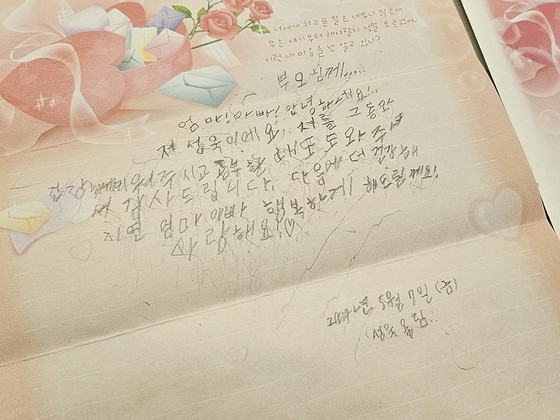 너에게 하고픈 말은 너무나 많은데
무슨 얘기부터 해야할지 정말 모르겠어.
이런 내 마음을 넌 알고 있니?
부모님께.....
엄마!아빠! 안녕하세요!..
저 성욱이에요! 저를 그동안
건강하게 키워주시고 공부를 도와주셔
서 감사드립니다. 다음에 더 건강해
지면 엄마 아빠 행복하게 해드릴께요!
사랑해요!♡
5월 7일 (금)
(성욱 올림..